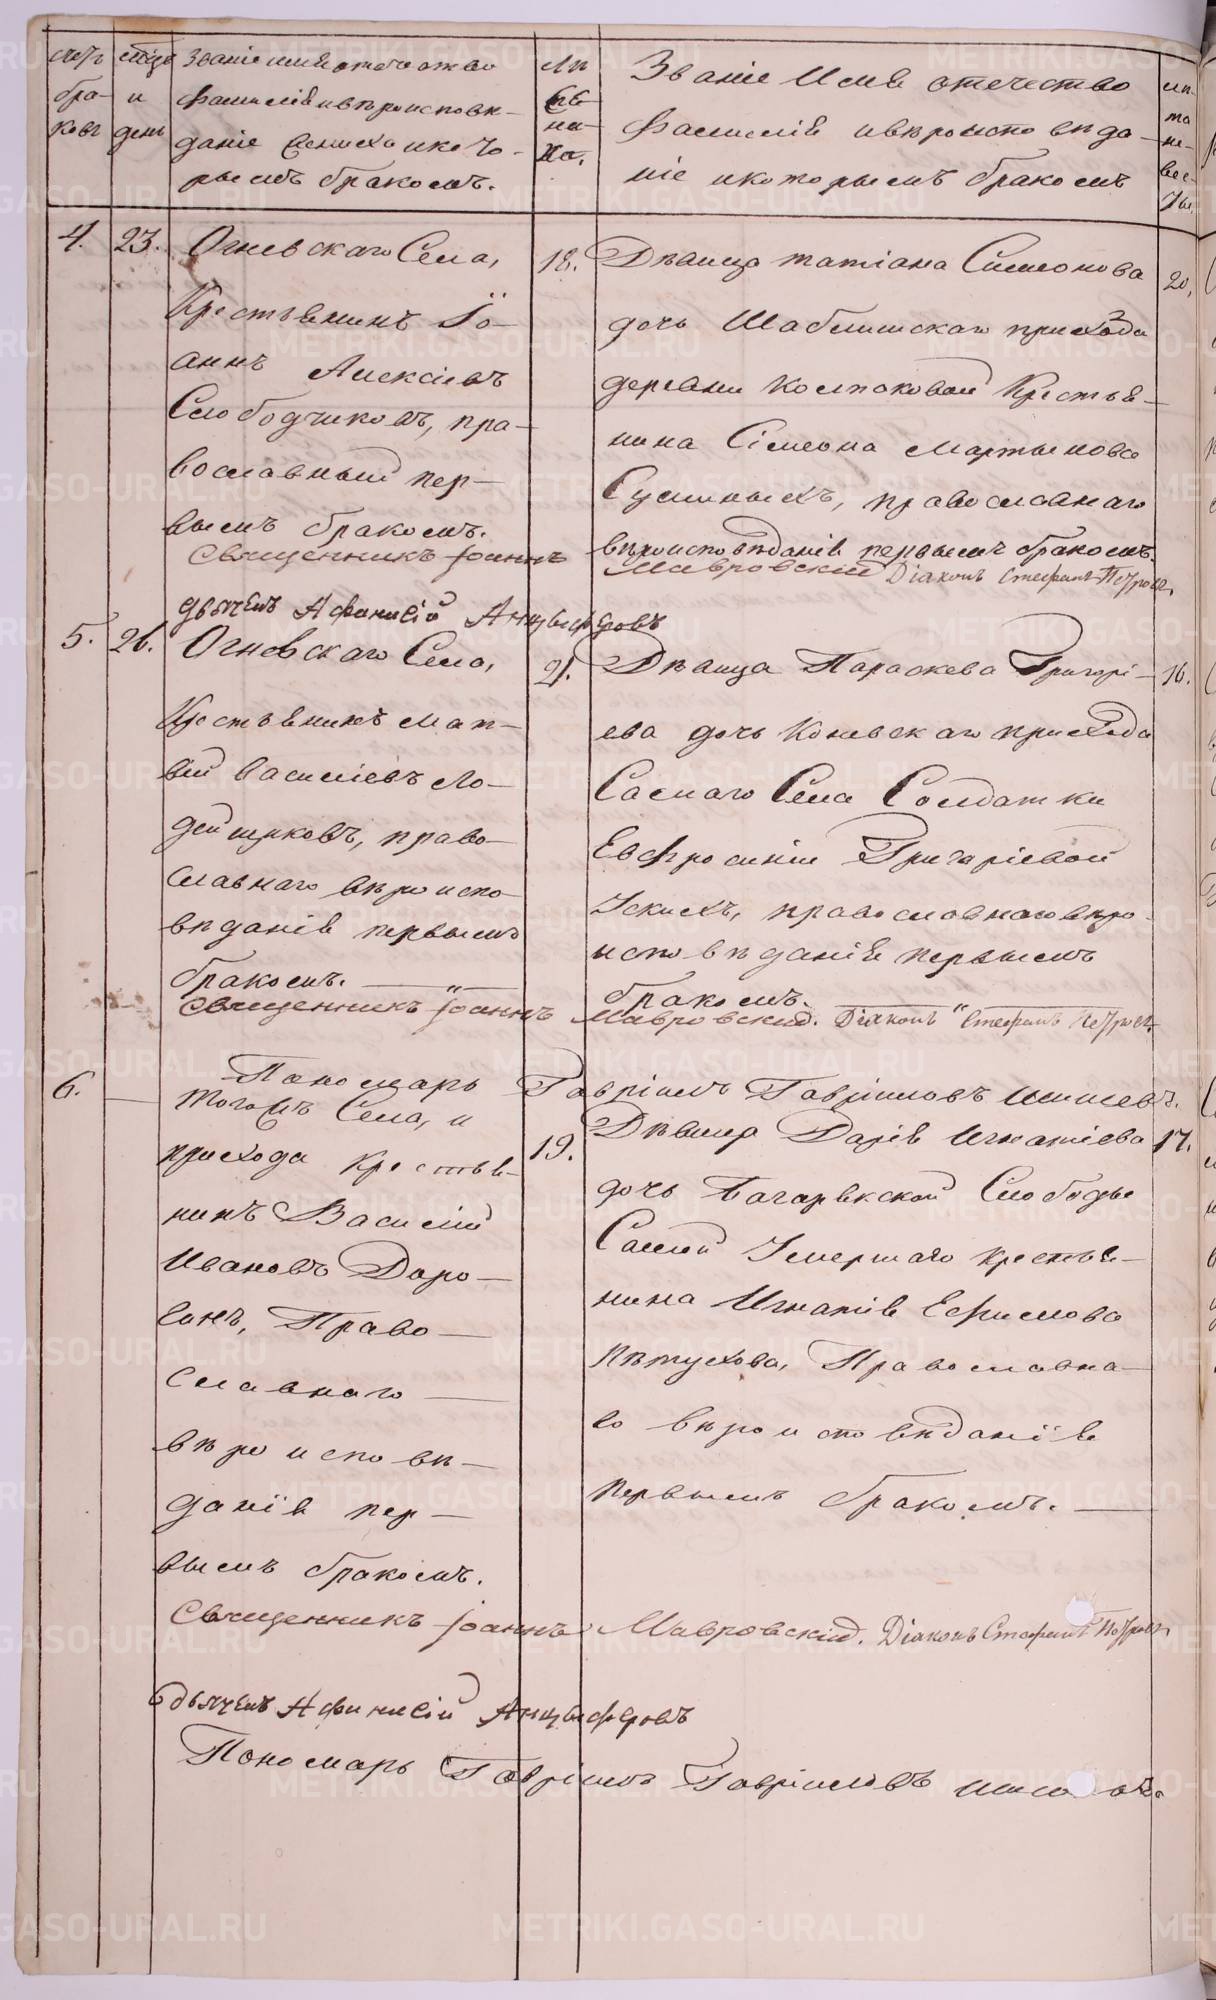 счетъ
бра-
ковъ
мѣсяцъ
и
день
Званіе имя отечество
фамилія и вѣроисповѣ-
даніе жениха и кото-
рымъ бракомъ.
лѣ
же-
ни-
ха.
Званіе Имя отечество
фамилія и вѣроисповѣда-
ніе и которымъ бракомъ
лѣ
та
не-
вѣс-
ты.
4.
23.
Огневскаго Села,
Крестьянинъ Іо-
аннъ Алексіевъ
Слободчиковъ, пра-
вославный пер-
вымъ бракомъ.
18.
Дѣвица татіана Симеонова
дочь Шаблишскаго прихода
деревни Колпаковой Крестья-
нина Сімеона Мартынова
Суминыхъ, православнаго
вѣроисповѣданія первымъ бракомъ.
20,
Священникъ Іоаннъ Мавровскій Діаконъ Стефанъ Петровъ
дьячекъ Афанасій Анцыферовъ
5.
26.
Огневскаго Села,
Крестьянинъ мат-
вій Василіевъ Ло-
дейщиковъ, право-
славнаго вѣроиспо-
вѣданія первымъ
бракомъ. — " —
21.
Дѣвица Параскева Григорі-
ева дочь Коневскаго прихода
Самаго Села Солдатки
Евфросиніи Григоріевой
Ускихъ, православнаго вѣро-
исповѣданія первымъ
бракомъ. — "
16.
Священникъ Іоаннъ Мавровскій. Діаконъ Стефанъ Петровъ
Пономарь Гавріилъ Гавріиловъ
6.
—
Тогожъ Села, и
прихода Крестья-
нинъ Василій
Ивановъ Доро-
нинъ, Право—
славнаго —
вѣроисповѣ-
данія пер—
вымъ бракомъ.
19.
Дѣвица Дарія Игнатіева
дочь Багарякской Слободы
Самой Умершаго крестья-
нина Игнатія Ефимова
Пѣтухова, Православна-
го вѣроисповѣданія
первымъ бракомъ. —
17.
Священникъ Іоаннъ Мавровскій. Діаконъ Стефанъ Петровъ
дьячекъ Афанасій Анцыферовъ
Пономарь Гавріилъ Гавріиловъ
METRIKI.GASO-URAL.RU